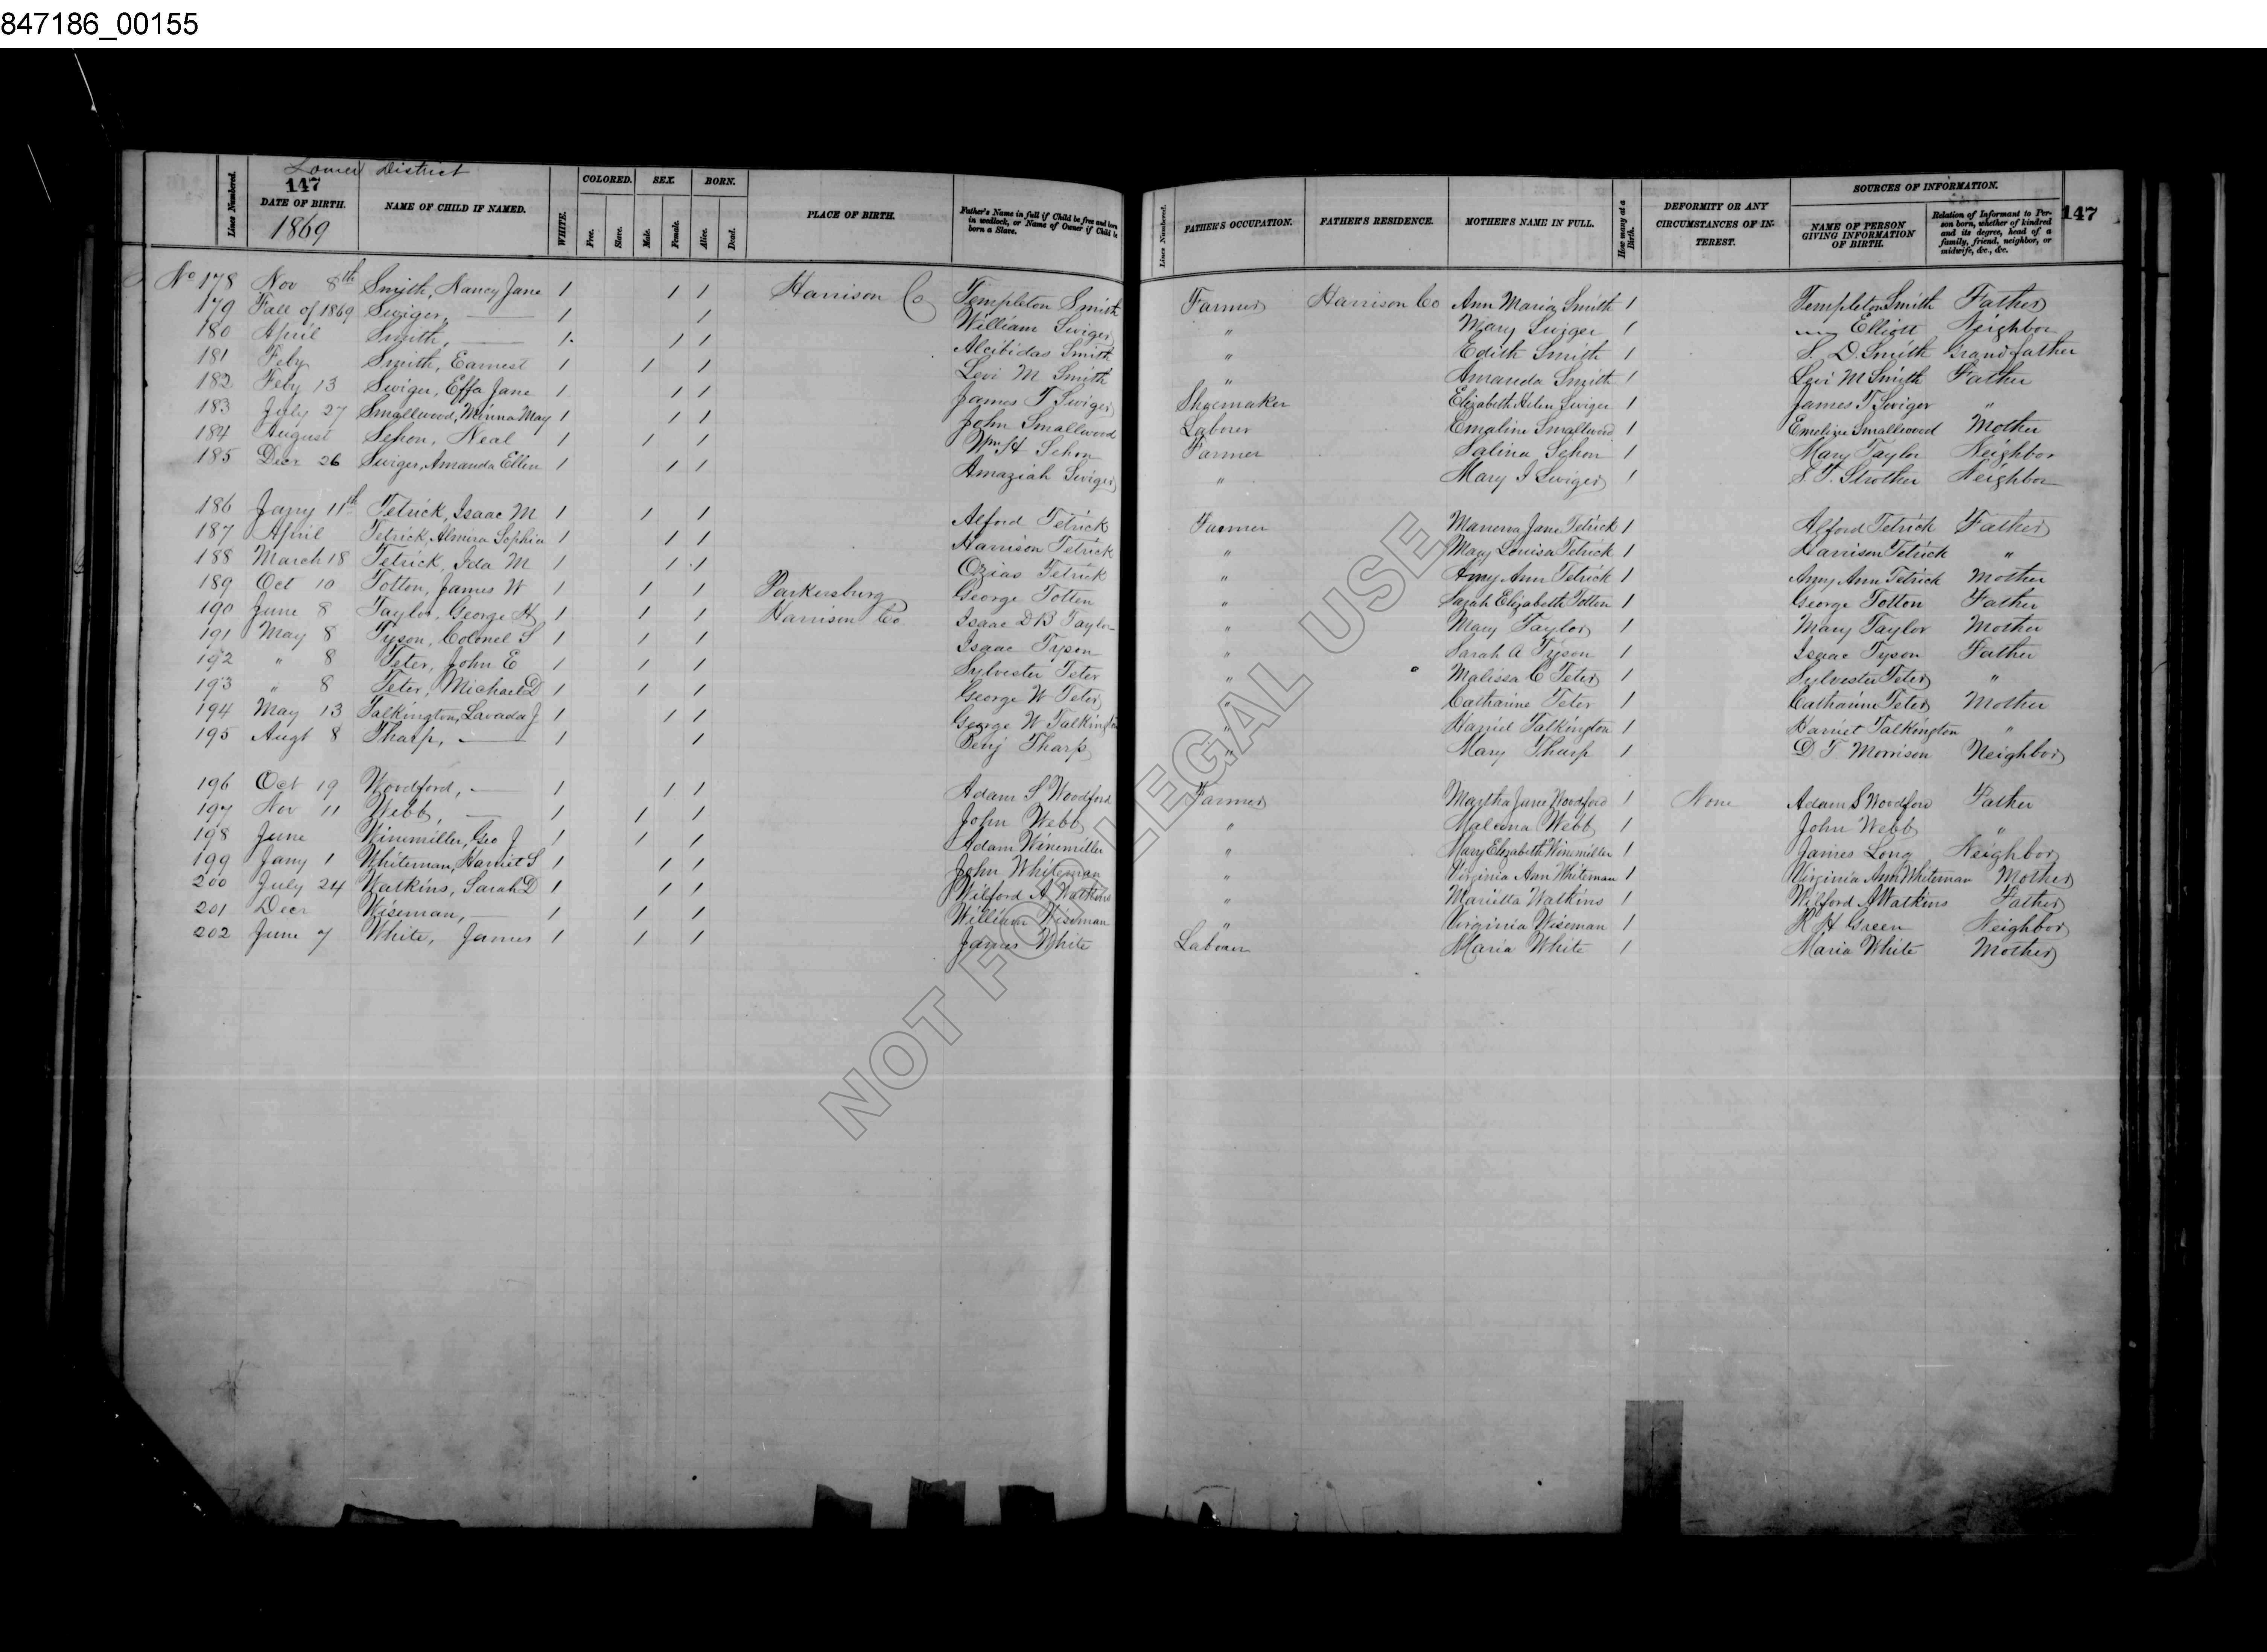 847186_00155
Lower District
147
Lines Numbered.
DATE OF BIRTH.
1869
NAME OF CHILD IF NAMED.
WHITE.
COLORED.
Free.
Slave.
SEX.
Male.
Female.
BORN.
Alive.
Dead.
PLACE OF BIRTH.
Father's Name in full if Child be free and born in wedlock, or Name of Owner if Child be born a Slave.
Lines Numbered.
FATHER'S OCCUPATION.
FATHER'S RESIDENCE.
MOTHER'S NAME IN FULL.
How many at a Birth.
DEFORMITY OR ANY CIRCUMSTANCES OF INTEREST.
SOURCES OF INFORMATION.
NAME OF PERSON GIVING INFORMATION OF BIRTH.
Relation of Informant to Person born, whether of kindred and its degree, head of a family, friend, neighbor, or midwife, &c., &c.
147
No 178 Nov 8th Smith, Nancy Jane 1 1 1 Harrison Co Templeton Smith Farmer Harrison Co Ann Maria Smith 1 Templeton Smith Father
179 Fall of 1869 Swiger, — 1 1 William Swiger " Mary Swiger 1 Elliott Neighbor
180 April Smith, — 1 1 1 Alcibidas Smith " Edith Smith 1 S. D. Smith Grandfather
181 Feby Smith, Earnest 1 1 1 Levi M Smith " Amanda Smith 1 Levi M Smith Father
182 Feby 13 Swiger, Effa Jane 1 1 1 James T Swiger Shoemaker Elizabeth Helen Swiger 1 James T Swiger "
183 July 27 Smallwood, Minna May 1 1 1 John Smallwood Laborer Emaline Smallwood 1 Emeline Smallwood Mother
184 August Sehon, Neal 1 1 1 Wm H Sehon Farmer Salina Sehon 1 Mary Taylor Neighbor
185 Decr 26 Swiger, Amanda Ellen 1 1 1 Amaziah Swiger " Mary J Swiger 1 S. T. Strother Neighbor
186 Jany 11th Tetrick, Isaac M 1 1 1 Alford Tetrick Farmer Manerva Jane Tetrick 1 Alford Tetrick Father
187 April Tetrick, Almira Sophia 1 1 1 Harrison Tetrick " Mary Louisa Tetrick 1 Harrison Tetrick "
188 March 18 Tetrick, Ida M 1 1 1 Ozias Tetrick " Amy Ann Tetrick 1 Amy Ann Tetrick Mother
189 Oct 10 Totten, James W 1 1 1 Parkersburg George Totten " Sarah Elizabeth Totten 1 George Totton Father
190 June 8 Taylor, George H 1 1 1 Harrison Co. Isaac D B Taylor " Mary Taylor 1 Mary Taylor Mother
191 May 8 Tyson, Colonel S 1 1 1 Isaac Tyson " Sarah A Tyson 1 Isaac Tyson Father
192 " 8 Teter, John E 1 1 1 Sylvester Teter " Malissa C Teter 1 Sylvester Teter "
193 " 8 Teter, Michael D 1 1 1 George W Teter " Catharine Teter 1 Catharine Teter Mother
194 May 13 Talkington, Lavada J. 1 1 1 George W Talkington " Harriet Talkington 1 Harriet Talkington "
195 Augt 8 Tharp, — 1 1 Benj Tharp " Mary Tharp 1 D T Morrison Neighbor
196 Oct 19 Woodford, — 1 1 1 Adam S Woodford Farmer Martha Jane Woodford 1 None Adam S Woodford Father
197 Nov 11 Webb, — 1 1 1 John Webb " Malcena Webb 1 John Webb "
198 June Winemiller, Geo J 1 1 1 Adam Winemiller " Mary Elizabeth Winemiller 1 James Long Neighbor
199 Jany 1 Whiteman, Harriet S 1 1 1 John Whiteman " Virginia Ann Whiteman 1 Virginia Ann Whiteman Mother
200 July 24 Watkins, Sarah D 1 1 1 Wilford A Watkins " Marietta Watkins 1 Wilford A Watkins Father
201 Decr Wiseman, — 1 1 1 William Wiseman " Virginia Wiseman 1 H H Green Neighbor
202 June 7 White, James 1 1 1 James White Laborer Maria White 1 Maria White Mother
NOT FOR LEGAL USE